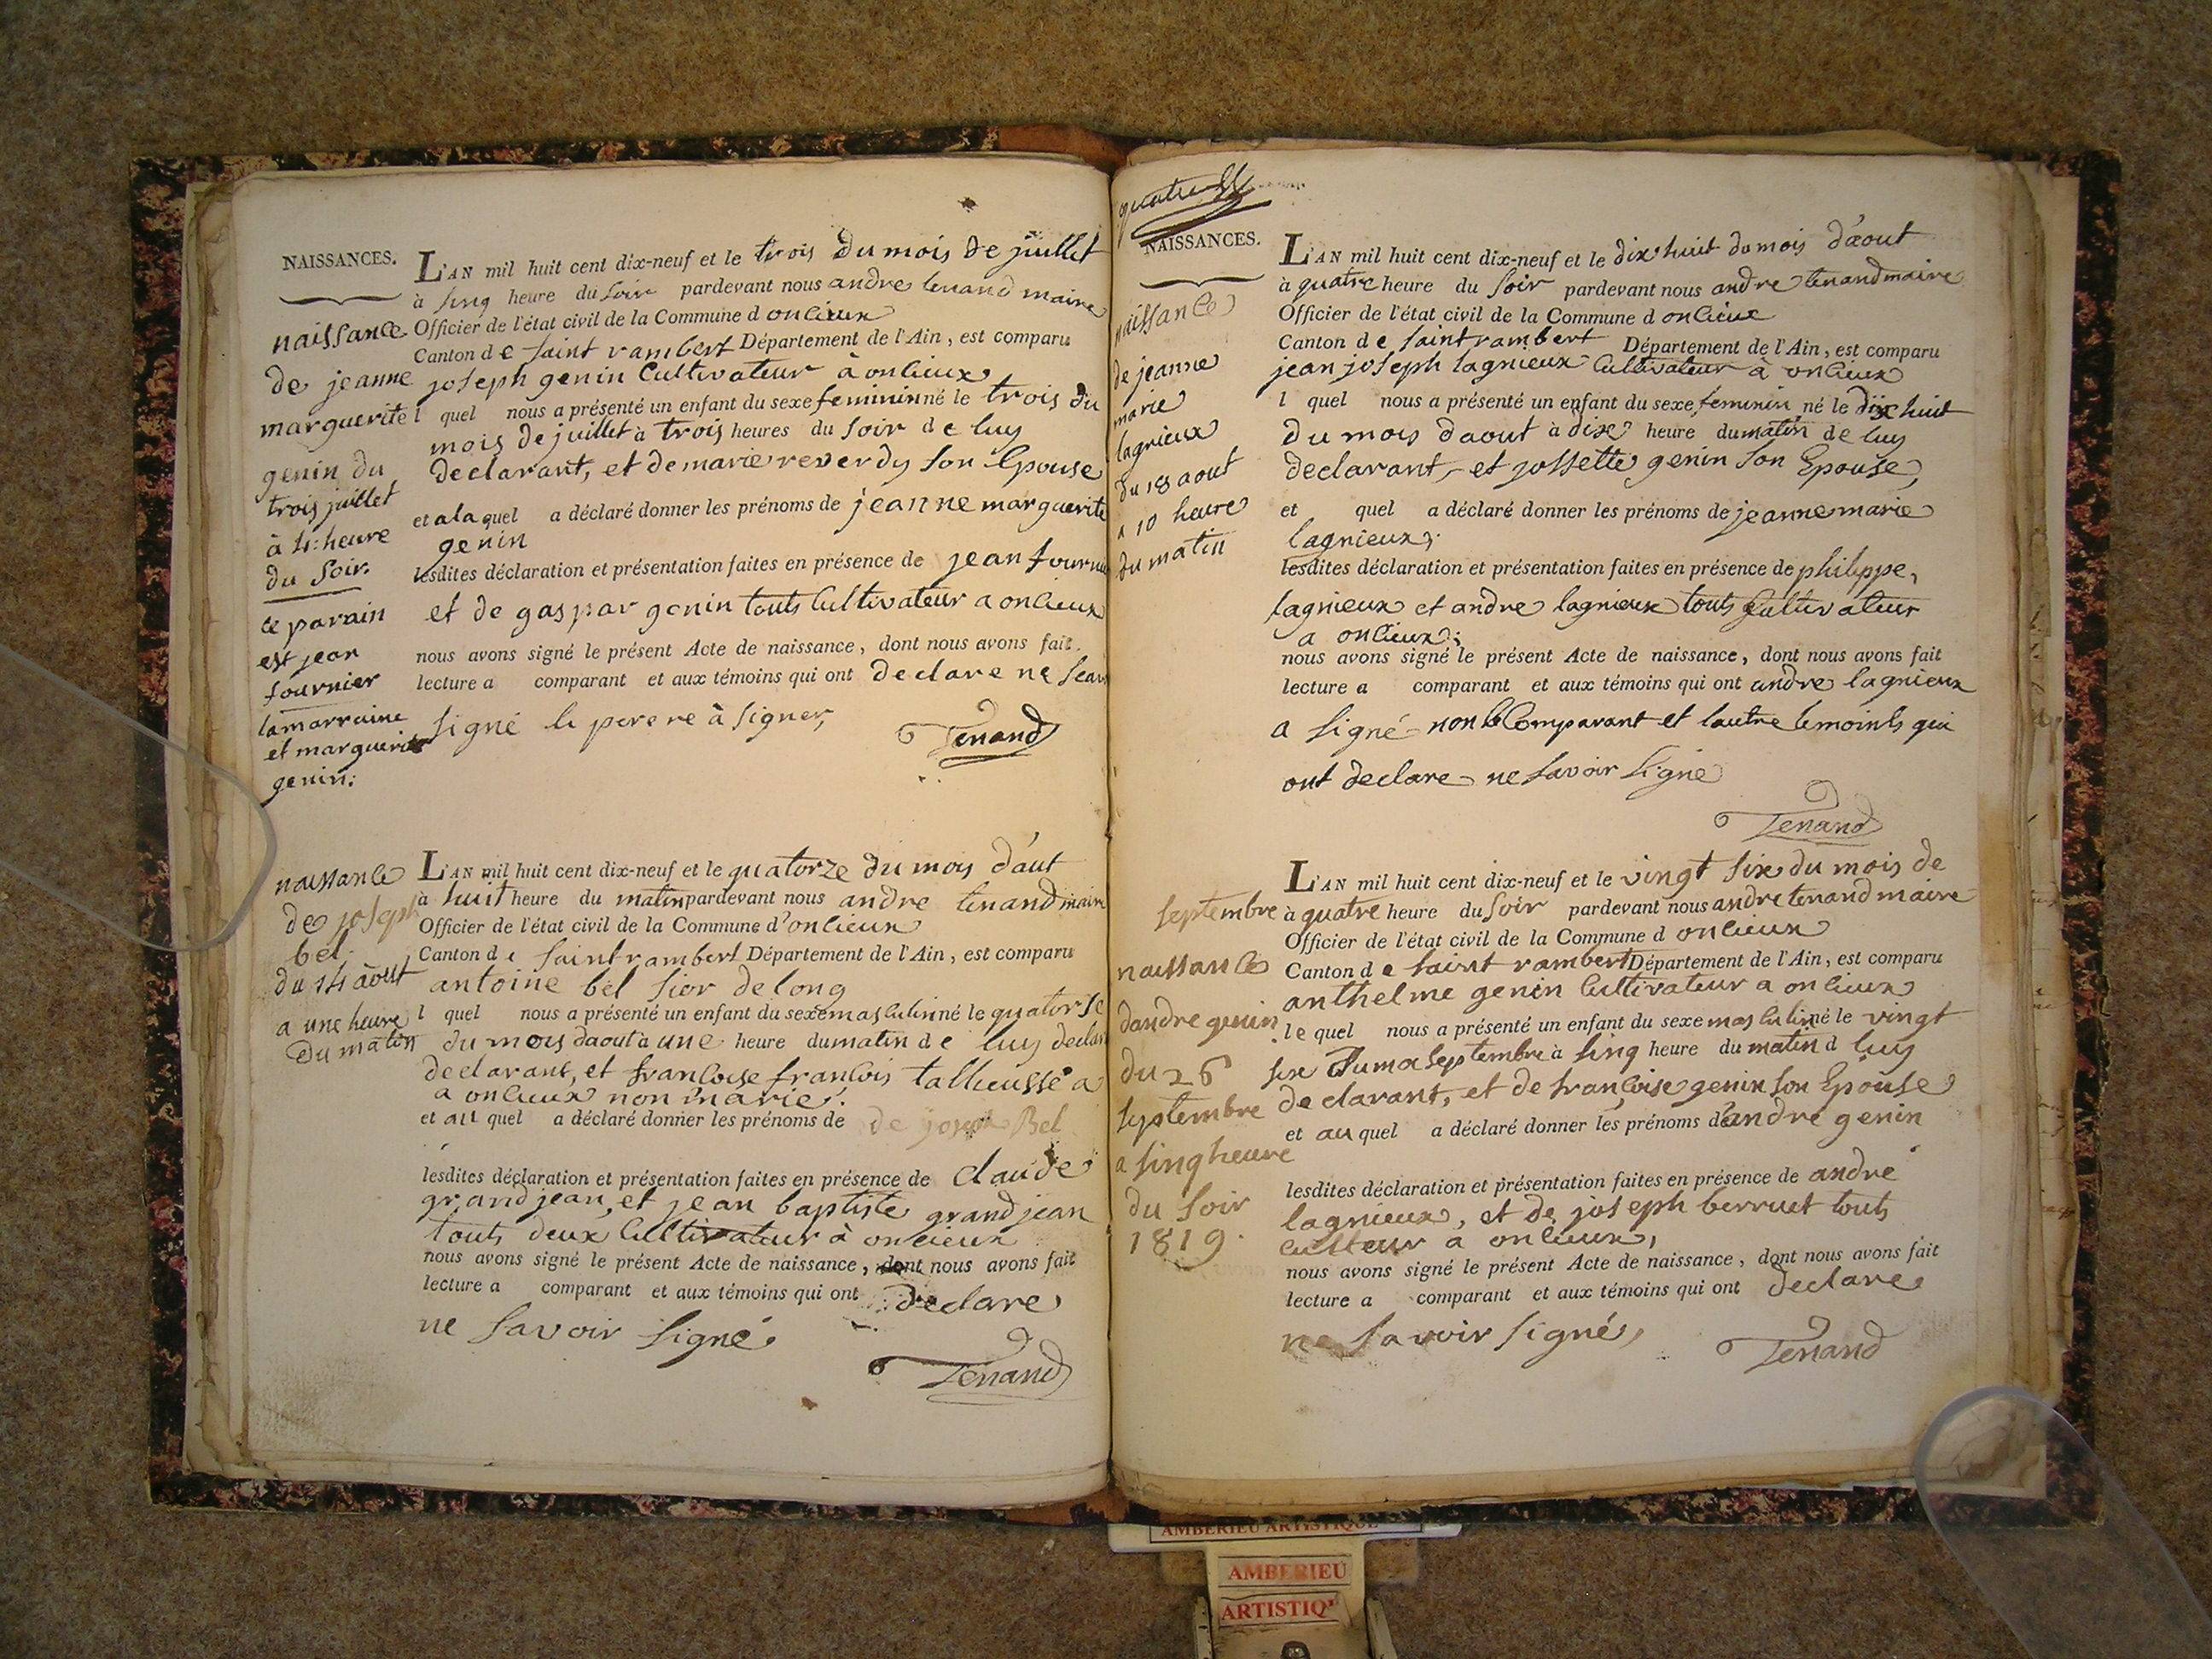 NAISSANCES.
naissance
de jeanne
marguerite
genin du
trois juillet
à 4: heure
du soir.
le parain
est jean
fournier
la marraine
et marguerite
genin:
L'AN mil huit cent dix-neuf et le trois du mois de juillet
à sinq heure du soir pardevant nous andre tenand maire
Officier de l'état civil de la Commune d onlieux
Canton de saint rambert Département de l'Ain, est comparu
joseph genin Cultivateur à onlieux
l quel nous a présenté un enfant du sexe feminin né le trois du
mois de juillet à trois heures du soir de luy
declarant, et de marie reverdy son Epouse
et a la quel a déclaré donner les prénoms de jeanne marguerite
genin
lesdites déclaration et présentation faites en présence de jean fournier
et de gaspar genin touts Cultivateur a onlieux
nous avons signé le présent Acte de naissance, dont nous avons fait
lecture a comparant et aux témoins qui ont declare ne
signé le pere ne à signer,
Tenand
naissance
de joseph
bel
du 14 àout
a une heure
du matin
L'AN mil huit cent dix-neuf et le quatorze du mois d'aut
à huit heure du matin pardevant nous andre tenand maire
Officier de l'état civil de la Commune d'onlieux
Canton de saint rambert Département de l'Ain, est comparu
antoine bel sior de long
l quel nous a présenté un enfant du sexe masculin né le quatorse
du mois daout à une heure du matin de luy declan
declarant, et francoise francois tallieusse a
a onlieux non marie.
et au quel a déclaré donner les prénoms de de joseph Bel
lesdites déclaration et présentation faites en présence de claude
grand jean, et jean baptiste grand jean
touts deux Cultivateur à onlieux
nous avons signé le présent Acte de naissance, dont nous avons fait
lecture a comparant et aux témoins qui ont declare
ne savoir signé.
Tenand
quatre
NAISSANCES.
naissance
de jeanne
marie
lagnieux
du 18 aout
a 10 heure
du matin
L'AN mil huit cent dix-neuf et le dix huit du mois d'aout
à quatre heure du soir pardevant nous andre tenand maire
Officier de l'état civil de la Commune d onlieux
Canton de saint rambert Département de l'Ain, est comparu
jean joseph lagnieux Cultivateur à onlieux
l quel nous a présenté un enfant du sexe feminin né le dix huit
du mois daout à dixe heure du matin de luy
declarant, et jossette genin son Epouse,
et quel a déclaré donner les prénoms de jeanne marie
lagnieux;
lesdites déclaration et présentation faites en présence de philippe,
lagnieux et andre lagnieux touts Cultivateur
a onlieux;
nous avons signé le présent Acte de naissance, dont nous avons fait
lecture a comparant et aux témoins qui ont andre lagnieux
a signé non le Comparant et lautre temoints qui
ont declare ne savoir signe
Tenand
L'AN mil huit cent dix-neuf et le vingt six du mois de
septembre à quatre heure du soir pardevant nous andre tenand maire
Officier de l'état civil de la Commune d onlieux
Canton de saint rambert Département de l'Ain, est comparu
anthelme genin Cultivateur a onlieux
le quel nous a présenté un enfant du sexe masculin né le vingt
six du ma septembre à sinq heure du matin d luy
declarant, et de francoise genin son Epouse
et au quel a déclaré donner les prénoms d'andré genin
lesdites déclaration et présentation faites en présence de andré
lagnieux, et de joseph berruet touts
culteur a onlieux,
nous avons signé le présent Acte de naissance, dont nous avons fait
lecture a comparant et aux témoins qui ont declare
ne savoir signé,
Tenand
naissance
dandre genin
du 26
septembre
a sinq heure
du soir
1819.
AMBERIEU ARTISTIQUE
AMBERIEU
ARTISTIQ'